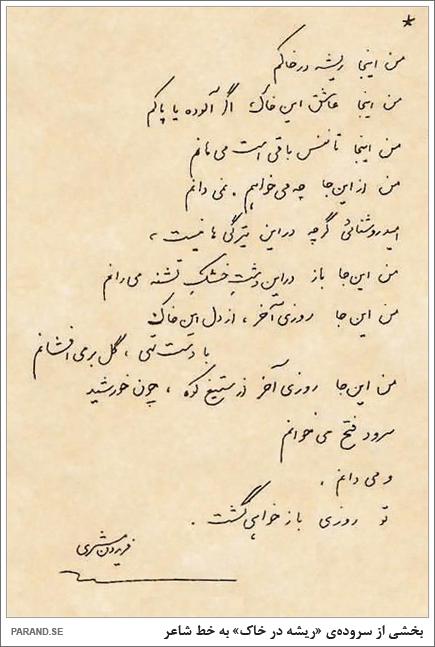 *
من اینجا ریشه در خاکم
من اینجا عاشق این خاک اگر آلوده یا پاکم
من اینجا تا نفس باقی است می مانم
من از این جا چه می خواهم. نمی دانم
امید روشنائی گرچه در این تیرگی ها نیست،
من این جا باز در این دشت خشک تشنه می رانم
من این جا روزی آخر، از دل این خاک
با دست تهی، گل برمی افشانم
من این جا روزی آخر از ستیغ کوه، چون خورشید
سرود فتح می خوانم
و می دانم،
تو روزی باز خواهی گشت.
فریدون مشیری
PARAND.SE
بخشی از سروده‌ی «ریشه در خاک» به خط شاعر